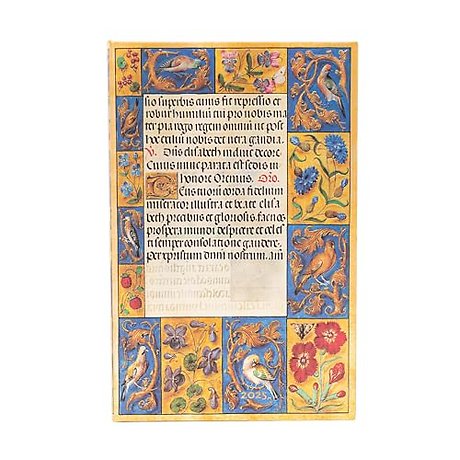 sio superbis animis fit repressio et
robur humiliũ tu pro nobis ma
ter pia rogo regem omniũ ut post
hoc exiliũ nobis det vera gaudia.
V. Dñs elisabeth induit decore
Cuius nunc parata est sedes in
honore Oremus. Oro.
Eus tuorũ corda fidelium
miserator illustra et beate elisa
beth precibus et gloriosis fac nos
prospera mundi despicere et celes
ti semper consolatione gaudere.
Per xpistum dñm nostrum. Am
2025